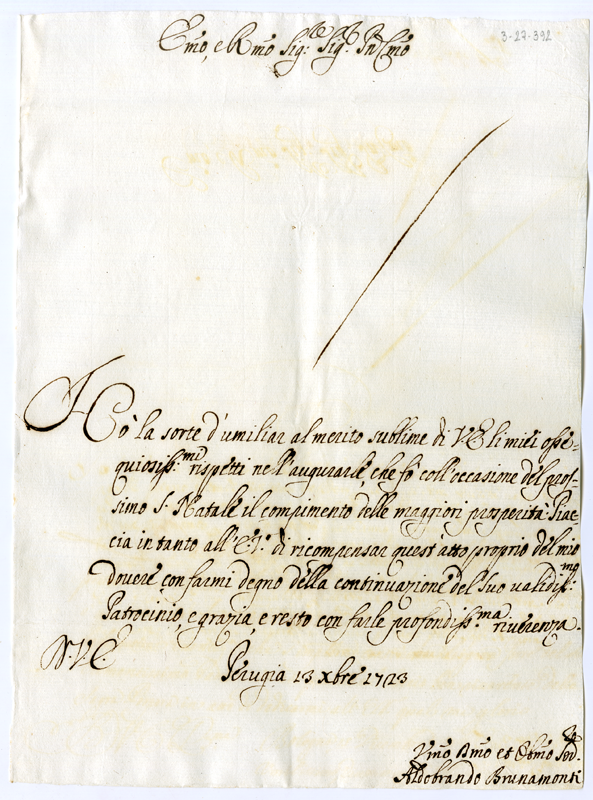 Emo, e Rmo Sigre Sigre Pn Cmo
3-27-392
Hò la sorte d'umiliar al merito sublime di V E li miei osse-
quiosiss.mi rispetti nell'augurarle, che fò coll'occasione del pros-
simo S. Natale il compimento delle maggiori prosperità. Piac-
cia in tanto all' di ricompensar quest'atto proprio del mio
dovere con farmi degno della continuazione del Suo validiss.mo
Patrocinio, e grazia, e resto con farle profondiss.ma riverenza.
Perugia 13 xbre 1723
Vmo Dmo et Obmo
Aldobrando Brunamonti